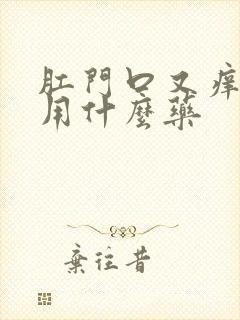 肛門口又痒
用什麼藥
棄往昔